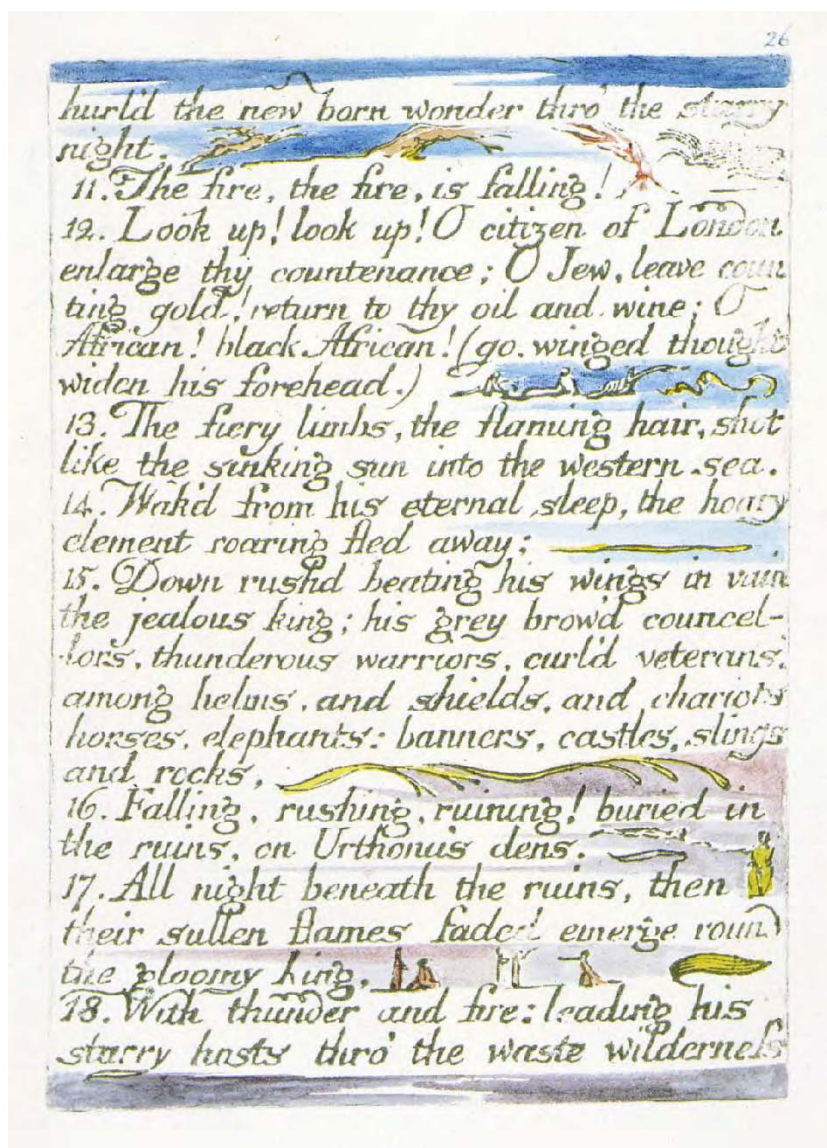 26
hurl'd the new born wonder thro' the starry
night.
11. The fire, the fire, is falling!
12. Look up! look up! O citizen of London
enlarge thy countenance; O Jew, leave coun
ting gold! return to thy oil and wine; O
African! black African! (go. winged thought
widen his forehead.)
13. The fiery limbs, the flaming hair, shot
like the sinking sun into the western sea.
14. Wak'd from his eternal sleep, the hoary
element roaring fled away;
15. Down rush'd beating his wings in vain
the jealous king; his grey brow'd councel-
lors, thunderous warriors, curl'd veterans,
among helms, and shields, and chariots
horses, elephants: banners, castles, slings
and rocks,
16. Falling, rushing, ruining! buried in
the ruins, on Urthona's dens.
17. All night beneath the ruins, then
their sullen flames faded emerge round
the gloomy king,
18. With thunder and fire: leading his
starry hosts thro' the waste wilderness